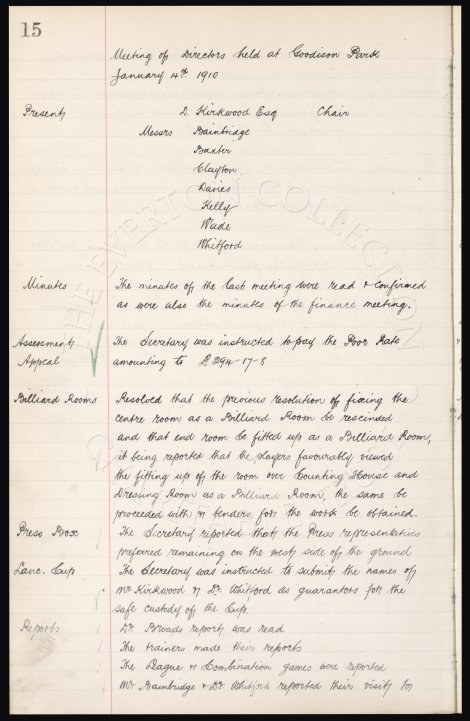 15
Meeting of Directors held at Goodison Park
January 4th 1910
Present D. Kirkwood Esq Chair
Messrs Bainbridge
Baxter
Clayton
Davies
Kelly
Wade
Whitford
Minutes The minutes of the last meeting were read & confirmed
as were also the minutes of the finance meeting.
Assessment The Secretary was instructed to pay the Poor Rate
Appeal amounting to £294-17-8
Billiard Rooms Resolved that the previous resolution of fixing the
centre room as a Billiard Room be rescinded
and that end room be fitted up as a Billiard Room,
it being reported that the players favourably viewed
the fitting up of the room over Counting House and
Dressing Room as a Billiard Room, the same be
proceeded with & tenders for the work be obtained.
Press Box The Secretary reported that the Press representatives
preferred remaining on the west side of the ground
Lanc. Cup The Secretary was instructed to submit the names of
Mr Kirkwood & Dr. Whitford as guarantors for the
safe custody of the Cup.
Reports Dr. Broads report was read
The trainers made their reports
The League & Combination games were reported
Mr Bainbridge & Dr. Whitford reported their visit to
THE EVERTON COLLECTION